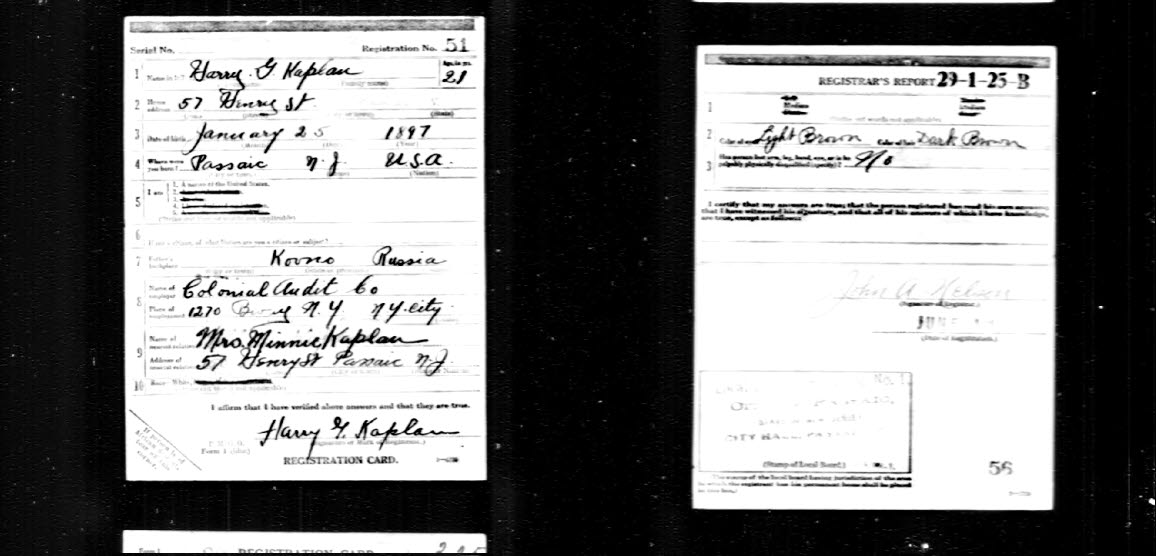 Serial No.
Registration No. 51
1 Name in full Harry G. Kaplan
(Family name)
Age, in yrs.
21
2 Home address 57 Henry St.
(State)
3 Date of birth January 25 1897
(Month) (Day) (Year)
4 Where were you born? Passaic N.J. U.S.A.
(Nation)
5 I am
1. A native of the United States.
2.
3.
4.
5.
6
If not a citizen, of what Nation are you a citizen or subject?
7 Father's birthplace Kovno Russia
8 Name of employer Colonial Audit Co
Place of employment 1270 N.Y. N Y city
9 Name of nearest relative Mrs. Minnie Kaplan
Address of nearest relative 57 Henry St Passaic N.J.
10 Race—White
I affirm that I have verified above answers and that they are true.
Harry G. Kaplan
(Signature or Mark of Registrant.)
P. M. G. O.
Form 1 (blue)
REGISTRATION CARD.
REGISTRAR'S REPORT 29-1-25-B
1
Medium
Medium
(Strike out words not applicable)
2 Color of eyes Light Brown Color of hair Dark Brown
3 Has person lost arm, leg, hand, eye, or is he
palpably physically disqualified (specify)? No
I certify that my answers are true; that the person registered has read his own answers;
that I have witnessed his signature, and that all of his answers of which I have knowledge,
are true, except as follows:
John A. Nelson
(Signature of Registrar.)
JUNE
(Date of Registration.)
No. 1
CITY HALL
(Stamp of Local Board.)
56
The stamp of the local board having jurisdiction of the area
in which the registrant has his permanent home shall be placed
in this box.)
Form 1
REGISTRATION CARD